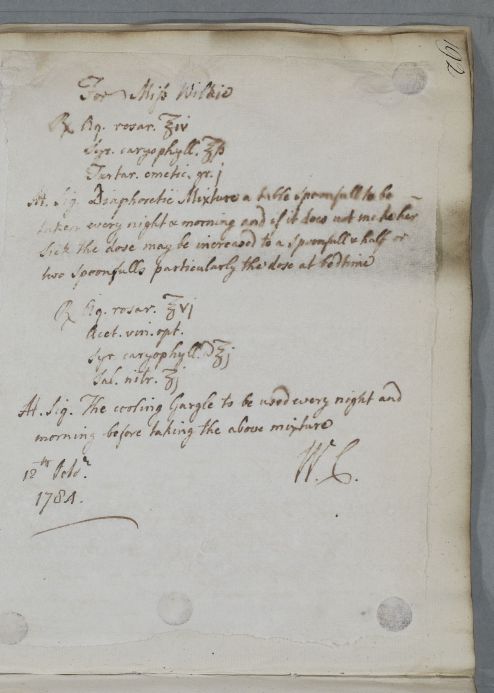 192
For Miss Wilkie
℞ Aq. rosar. ℥iv
Syr. caryophyll. ℥ß
Tartar. emetic. gr. j
M. Sig. Diaphoretic Mixture a table spoonfull to be
taken every night & morning and if it does not make her
sick the dose may be increased to a spoonfull & half or
two spoonfulls particularly the dose at bedtime
℞ Aq. rosar. ℥vj
Acet. vin. opt.
Syr. caryophyll. ℥j
Sal. nitr. ʒj
M. Sig. The cooling Gargle to be used every night and
morning before taking the above mixture
W. C.
12th
1784.